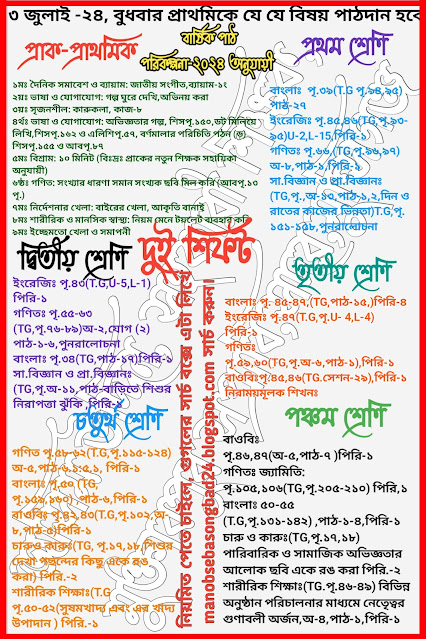 ৩ জুলাই -২৪, বুধবার প্রাথমিকে যে যে বিষয় পাঠদান হবে
প্রাক-প্রাথমিক
বার্ষিক পাঠ
পরিকল্পনা-২০২৪ অনুযায়ী
১মঃ দৈনিক সমাবেশ ও ব্যায়াম: জাতীয় সংগীত,ব্যায়াম-১২
২য়ঃ ভাষা ও যোগাযোগ: গল্প ঘুরে দেখি,অভিনয় করা
৩য়ঃ সৃজনশীল: কারুকলা, কাজ-৮
৪র্থঃ ভাষা ও যোগাযোগ: অভিজ্ঞতার গল্প, শিসপৃ.১৫০,ডট মিলিয়ে
লিখি,শিসপৃ.১৬২ ও এলিশিপৃ.৫৭, বর্ণমালার পরিচিতি পঠন (ড)
শিসপৃ.১৫৫ ও আবপৃ.৮৭
৫মঃ বিশ্রাম: ১০ মিনিট (বিঃদ্রঃ প্রাকের নতুন শিক্ষক সহায়িকা
অনুযায়ী)
৬ষ্ঠঃ গণিত: সংখ্যার ধারণা সমান সংখ্যক ছবি মিল করি (আবপৃ.১৩
পৃ.)
৭মঃ নির্দেশনার খেলা: বাইরের খেলা, আকৃতি বানাই
৮মঃ শারীরিক ও মানসিক স্বাস্থ্য: নিয়ম মেনে টয়লেট ব্যবহার করি
৯মঃ ইচ্ছেমতো খেলা ও সমাপনী
প্রথম শ্রেণি
বাংলাঃ পৃ.৩৯(T.G পৃ.৯৪,৯৫)
পাঠ-২৭
ইংরেজিঃ পৃ.৪৫,৪৬(TG,পৃ.৯৩-
৯৫)U-2,L-15,পিরি-১
গণিতঃ পৃ.৬৬,(TG,পৃ.৯৬,৯৭)
অ-৮,পাঠ-১,পিরি-১
সা.বিজ্ঞান ও প্রা.বিজ্ঞানঃ
(TG,পৃ.,অ-১৩,পাঠ-১,২,দিন ও
রাতের কাজের ভিন্নতা)T.G,পৃ.
১৫১-১৫৮,পুনরালোচনা
দুই শিফট
দ্বিতীয় শ্রেণি
ইংরেজিঃ পৃ.৪৩(T.G,U-5,L-1)
পিরি-১
গণিতঃ পৃ.৫৫-৬৩
(TG,পৃ.৭৬-৮৯)অ-২,যোগ (২)
পাঠ-১-৬,পুনরালোচনা
বাংলাঃ পৃ.৩৪(TG,পাঠ-১৭)পিরি-১
সা.বিজ্ঞান ও প্রা.বিজ্ঞানঃ
(TG,পৃ.অ-১১,পাঠ-বাড়িতে শিশুর
নিরাপত্তা ঝুঁকি ,পিরি-১
তৃতীয় শ্রেণি
বাংলাঃ পৃ. ৪৫-৪৭,(TG,পাঠ-১৫,)পিরি-৪
ইংরেজিঃ পৃ.৪৭(T.G,পৃ.U- 4,L-4)
পিরি-১
গণিতঃ
পৃ.৫৯,৬০(TG,পৃ.অ-৬,পাঠ-১),পিরি-১
বাওবিঃপৃ.৪৫,৪৬(TG.সেশন-২৯),পিরি-১
নিরাময়মূলক শিখনঃ
নিয়মিত পেতে চাইলে, গুগলের সার্চ বক্সে এটা লিখে
manobsebasongbad24.blogspot.com সার্চ করুন।
চতুর্থ শ্রেণি
গণিত পৃ.৫৮-৬২(T.G,পৃ.১১৫-১২৪)
অ-৫,পাঠ-৬.১:৫.১, পিরি-১
বাংলাঃ পৃ.৫০ (TG,
পৃ.১৫৯,১৬০) ,পাঠ-৬,পিরি-১
বাওবিঃ পৃ.৪২,৪৩(T.G,পৃ.১০২,অ-
৮,পাঠ-৫)পিরি-১
চারুও কারুঃ(TG, পৃ.১৭,১৮,শিশুর
দেখা পছন্দের কিছু একে রঙ
করা) পিরি.-২
শারীরিক শিক্ষাঃ(T.G
পৃ.৫০-৫২(সুষমখাদ্য এবং এর খাদ্য
উপাদান ) পিরি.-১
পঞ্চম শ্রেণি
বাওবিঃ
পৃ.৪৬,৪৭(অ-৫,পাঠ-৭ )পিরি-১
গণিতঃ জ্যামিতি:
পৃ.১০৫,১০৬(TG,পৃ.২০৫-২১০) পিরি,১
বাংলাঃ ৫০-৫৫
(T.G,পৃ.১৩১-১৪২) ,পাঠ-১-৪,পিরি-১
চারু ও কারুঃ(TG,পৃ.১৭,১৮)
পারিবারিক ও সামাজিক অভিজ্ঞতার
আলোক ছবি একে রঙ করা পিরি.-২
শারীরিক শিক্ষাঃ(TG.পৃ.৪৬-৪৯) বিভিন্ন
অনুষ্ঠান পরিচালনার মাধ্যমে নেতৃত্বের
গুণাবলী অর্জন,অ-৪,পাঠ-১,পিরি-১